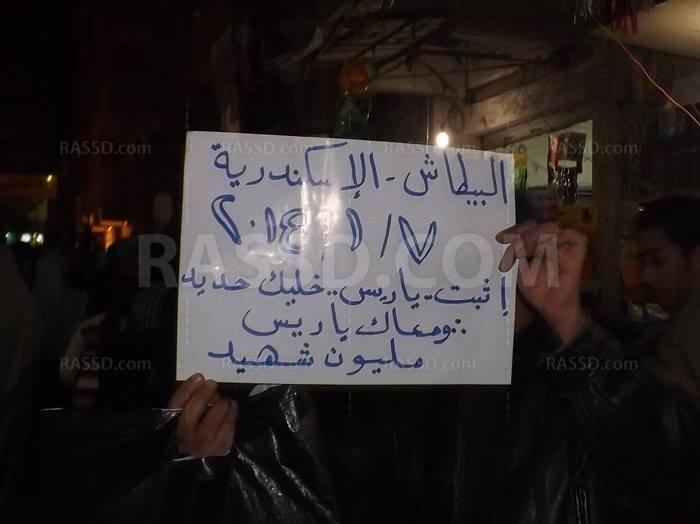 البيطاش - الإسكندرية
٧ / ١ / ٢٠١٤
إثبت .. ياريس .. خليك حديد
.. ومعاك ياريس
مليون شهيد
RASSD.COM
RASSD.com
RASSD.com
RASSD.com
RASSD.com
RASSD.com
RASSD.com